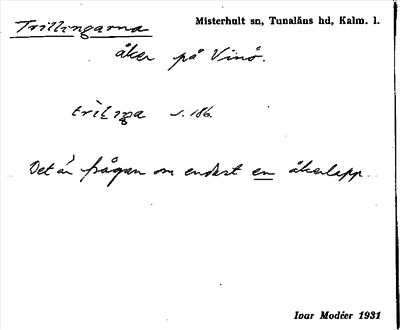 Trillingarna
Misterhult sn, Tunaläns hd, Kalm. l.
åker på Vinö.
s. 186.
Det är frågan om endast en åkerlapp.
Ivar Modéer 1931